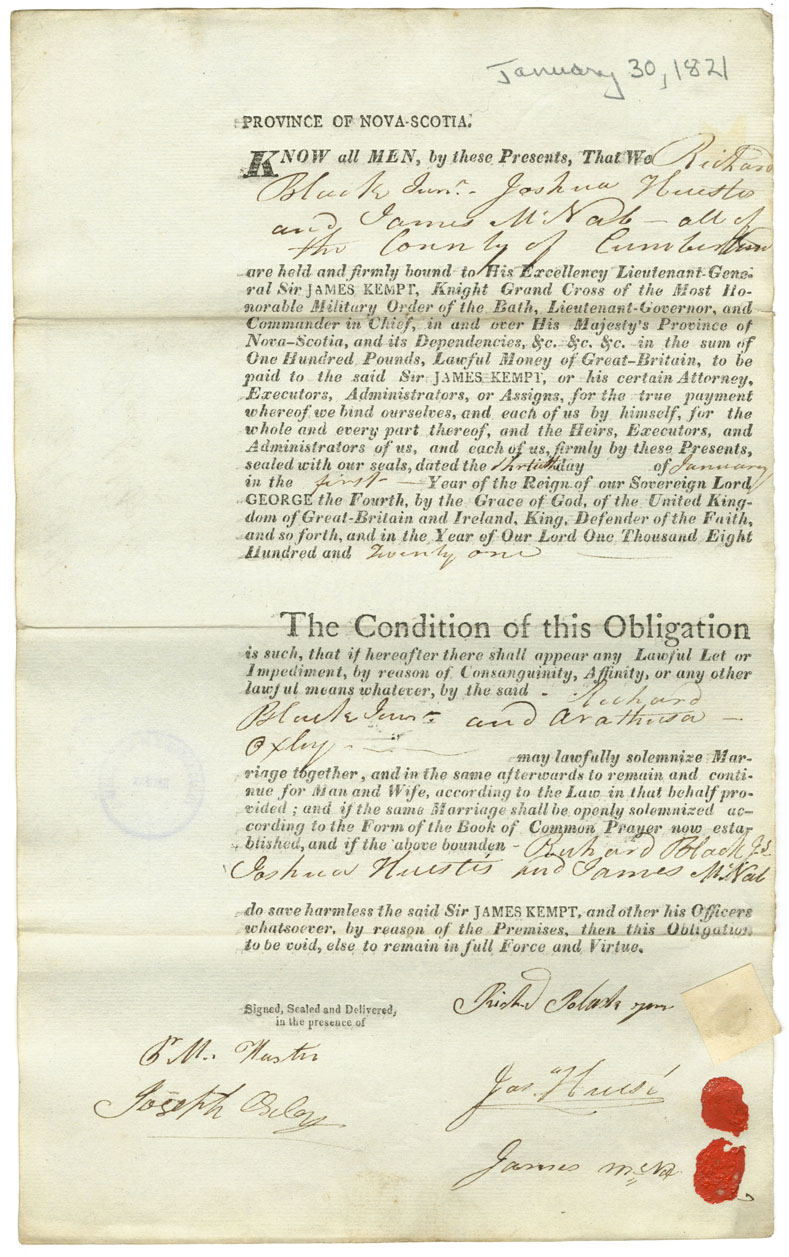 January 30, 1821
PROVINCE OF NOVA-SCOTIA.
KNOW all MEN, by these Presents, That We Richard
Black Junr. Joshua Huestis
and James McNab — all of
the County of Cumberland
are held and firmly bound to His Excellency Lieutenant-Gene-
ral Sir JAMES KEMPT, Knight Grand Cross of the Most Ho-
norable Military Order of the Bath, Lieutenant-Governor, and
Commander in Chief, in and over His Majesty's Province of
Nova-Scotia, and its Dependencies, &c. &c. &c. in the sum of
One Hundred Pounds, Lawful Money of Great-Britain, to be
paid to the said Sir JAMES KEMPT, or his certain Attorney,
Executors, Administrators, or Assigns, for the true payment
whereof we bind ourselves, and each of us by himself, for the
whole and every part thereof, and the Heirs, Executors, and
Administrators of us, and each of us, firmly by these Presents,
sealed with our seals, dated the thirtieth day of January
in the first — Year of the Reign of our Sovereign Lord
GEORGE the Fourth, by the Grace of God, of the United King-
dom of Great-Britain and Ireland, King, Defender of the Faith,
and so forth, and in the Year of Our Lord One Thousand Eight
Hundred and Twenty one
The Condition of this Obligation
is such, that if hereafter there shall appear any Lawful Let or
Impediment, by reason of Consanguinity, Affinity, or any other
lawful means whatever, by the said - Richard
Black Junr. and Arathusa —
Oxley
may lawfully solemnize Mar-
riage together, and in the same afterwards to remain and conti-
nue for Man and Wife, according to the Law in that behalf pro-
vided ; and if the same Marriage shall be openly solemnized ac-
cording to the Form of the Book of Common Prayer now esta-
blished, and if the above bounden - Richard Black
Joshua Huestis and James McNab
do save harmless the said Sir JAMES KEMPT, and other his Officers
whatsoever, by reason of the Premises, then this Obligation
to be void, else to remain in full Force and Virtue.
Signed, Sealed and Delivered,
in the presence of
Richd Black
Joseph Oxley
James McN